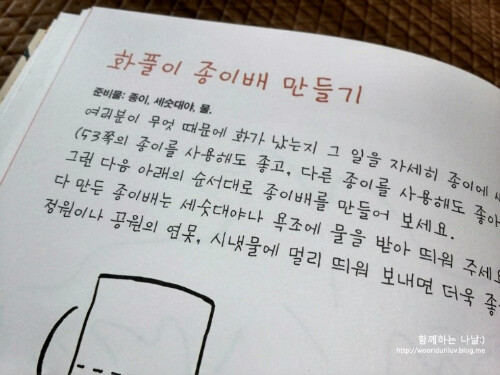 화풀이 종이배 만들기
준비물: 종이, 세숫대야, 물.
여러분이 무엇 때문에 화가 났는지 그 일을 자세히 종이에
(53쪽의 종이를 사용해도 좋고, 다른 종이를 사용해도 좋아
그런 다음 아래의 순서대로 종이배를 만들어 보세요.
다 만든 종이배는 세숫대야나 욕조에 물을 받아 띄워 주세요
정원이나 공원의 연못, 시냇물에 멀리 띄워 보내면 더욱 좋
함께하는 나날:)
http://wooriduriluv.blog.me